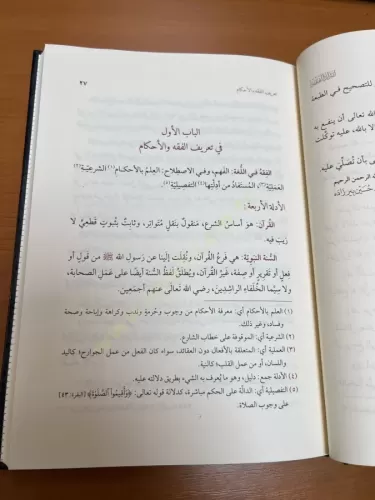 ٢٧
تعريف الفقه والأحكام
الباب الأول
في تعريف الفقه والأحكام
الفِقهُ فـي اللُّغة: الفهم، وفـي الاصطلاح: العِلمُ بالأحكـام(١) الشرعيَّة(٢)
العمَليَّة(٣)، المُستفادُ من أدِلَّتِها(٤) التفصيليَّة(٥).
الأدلة الأربعة:
القُرآن: هو أساسُ الشرع، مَنقولٌ بنَقلٍ مُتواترٍ، وثابتٌ بثبوتٍ قَطعيٍّ لا
رَيبَ فيه.
السُّنة النبويَّة: هي فَرعُ القُرآن، ونُقِلَت إلينا عن رسولِ الله ﷺ من قَولٍ أو
فِعلٍ أو تقريرٍ أو صِفة، غَيرُ القُرآن، ويُطلَقُ لَفظُ السُّنة أيضًا على عَملِ الصحابة،
ولا سيَّما الخُلَفاءِ الراشِدِين، رضي الله تعالى عنهم أجمَعين.
(١) العلم بالأحكام أي: معرفة الأحكام من وجوب وحُرمةٍ ونَدب وكراهة وإباحة وصحة
وفساد، وغير ذلك.
(٢) الشرعية أي: الموقوفة على خطاب الشارع.
(٣) العملية أي: المتعلقة بالأفعال دون العقائد، سواء كان الفعل من عمل الجوارح؛ كاليد
واللسان، أو من عمل القلب؛ كالنية.
(٤) الأدلة جمع: دليل، وهو ما يُعرف به الشيء بطريق دلالته عليه.
(٥) التفصيلية أي: الدالَّة على الحكم مباشرة، كدلالة قوله تعالى: ﴿وَأَقِيمُوا۟ ٱلصَّلَوٰةَ﴾ [البقرة: ٤٣]
على وجوب الصلاة.
للتصحيح فـي الطبعة
الله تعالى أن ينفع به
لا بالله، عليه توكَّلت
بأن تُصلِّي عليه
الرحمن الرحيم